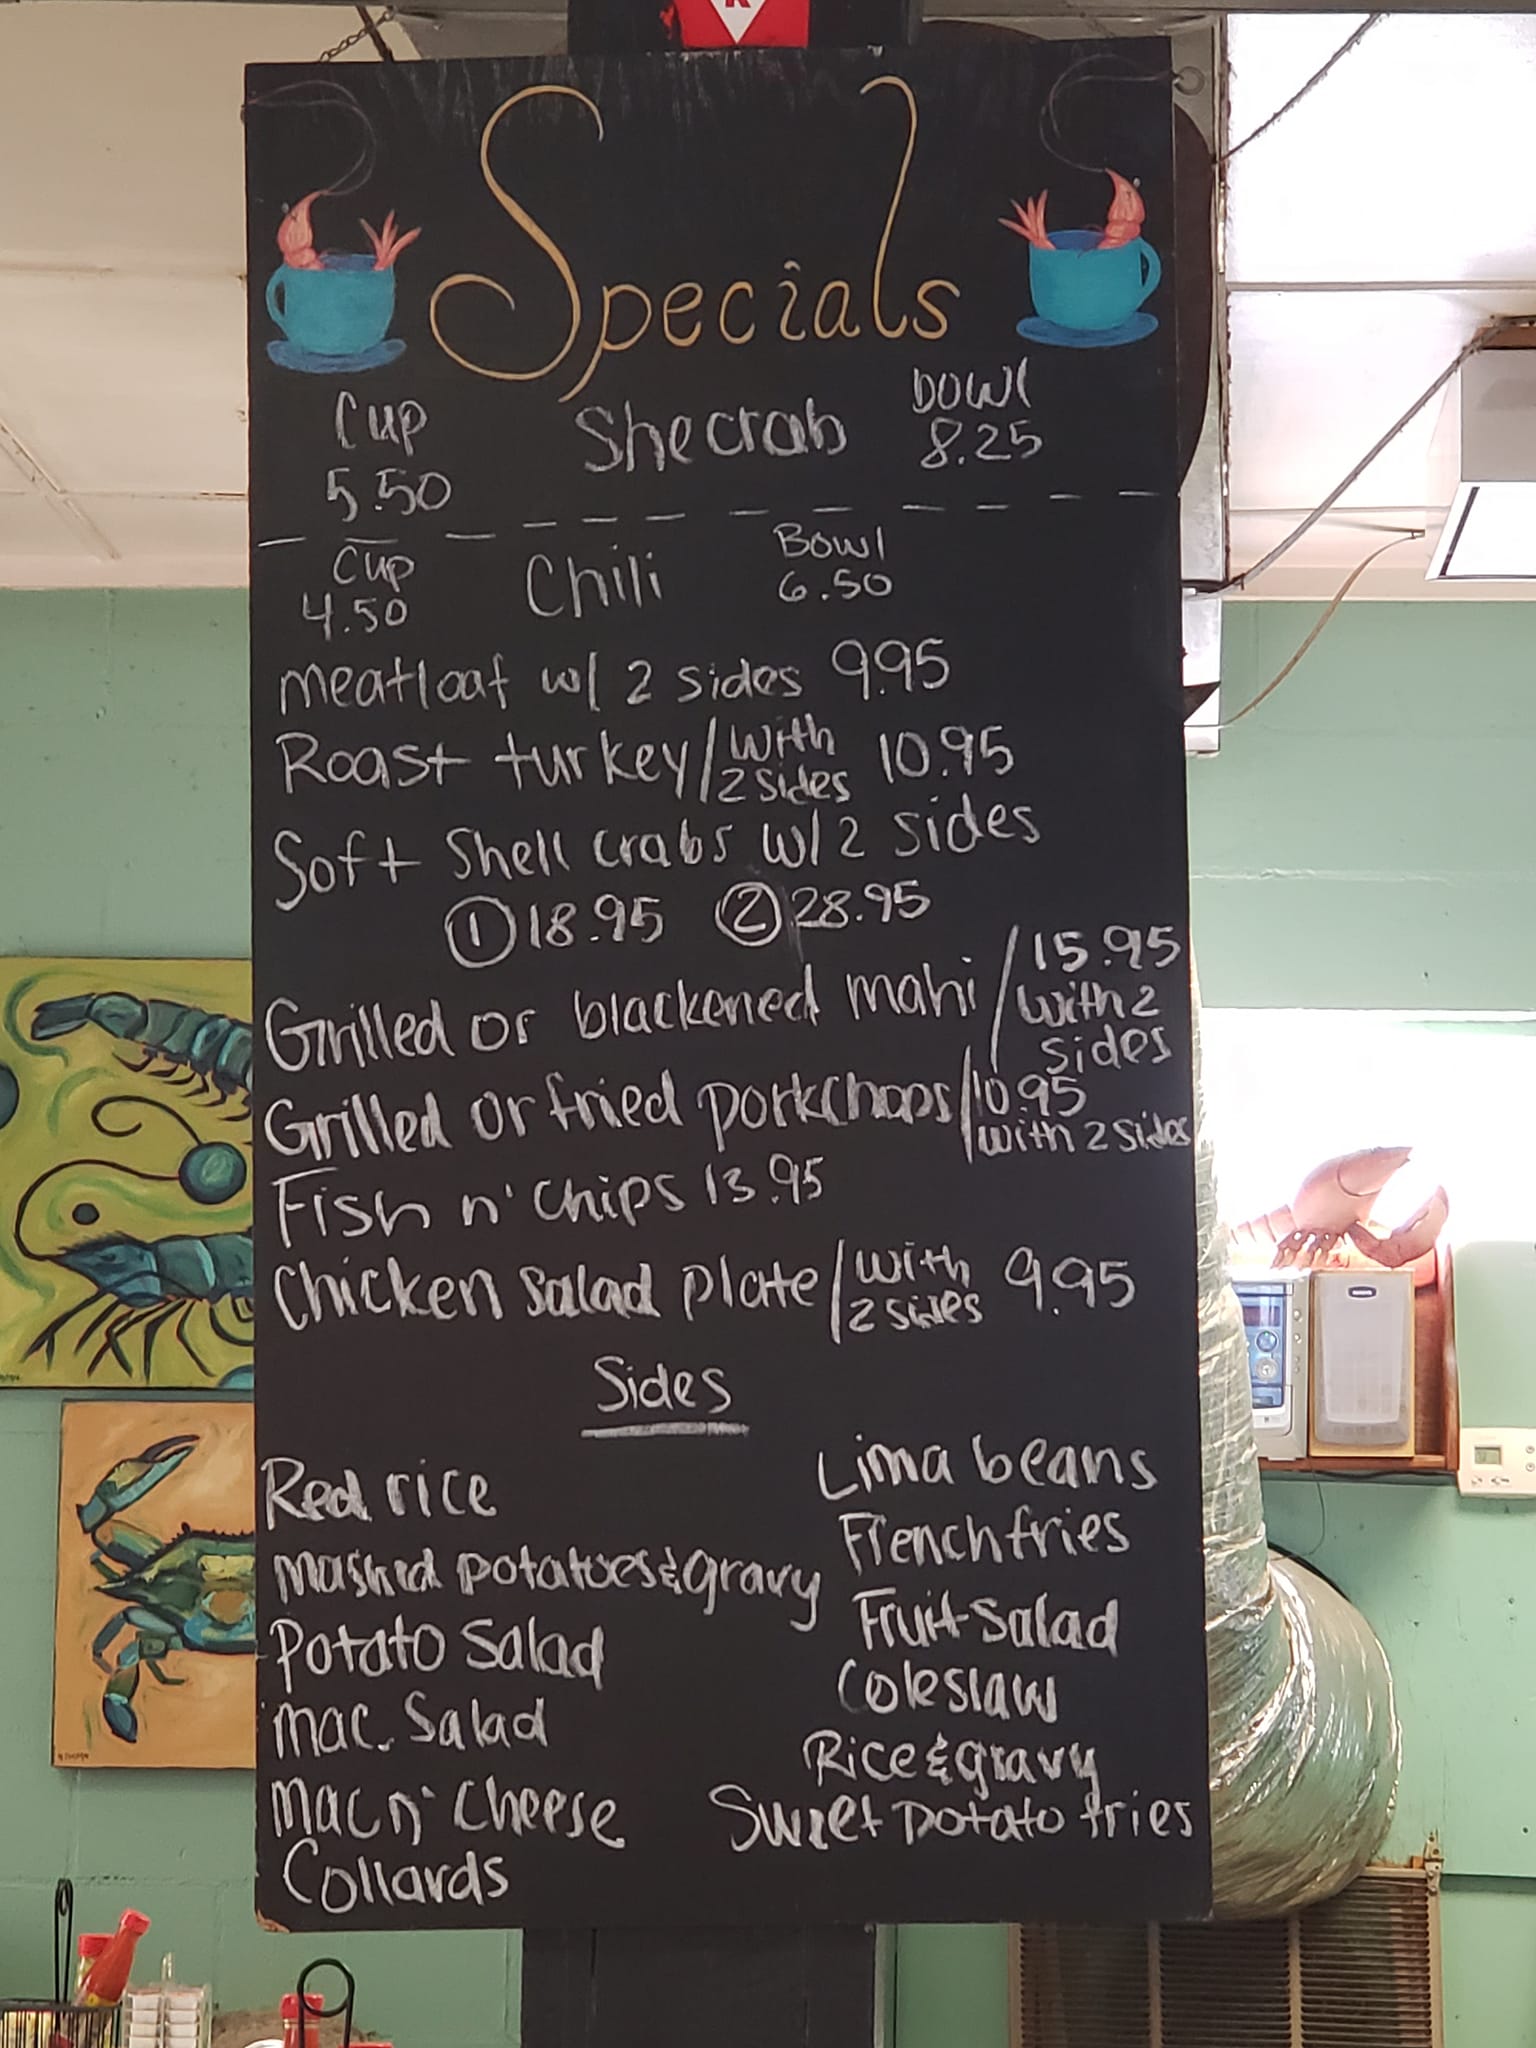 R
Specials
Cup Shecrab Bowl
5.50 8.25
Cup Chili Bowl
4.50 6.50
meatloaf w/ 2 sides 9.95
Roast turkey/with 2 sides 10.95
Soft Shell crabs w/2 sides
1 18.95 2 28.95
Grilled or blackened mahi/15.95
with 2
sides
Grilled or fried porkchops/10.95
with 2 sides
Fish n' Chips 13.95
Chicken salad plate/with 2 sides 9.95
Sides
Red rice
mashed potatoes & gravy
Potato Salad
mac. Salad
Mac n' Cheese
Collards
Lima beans
French fries
Fruit salad
Coleslaw
Rice & gravy
Sweet potato fries